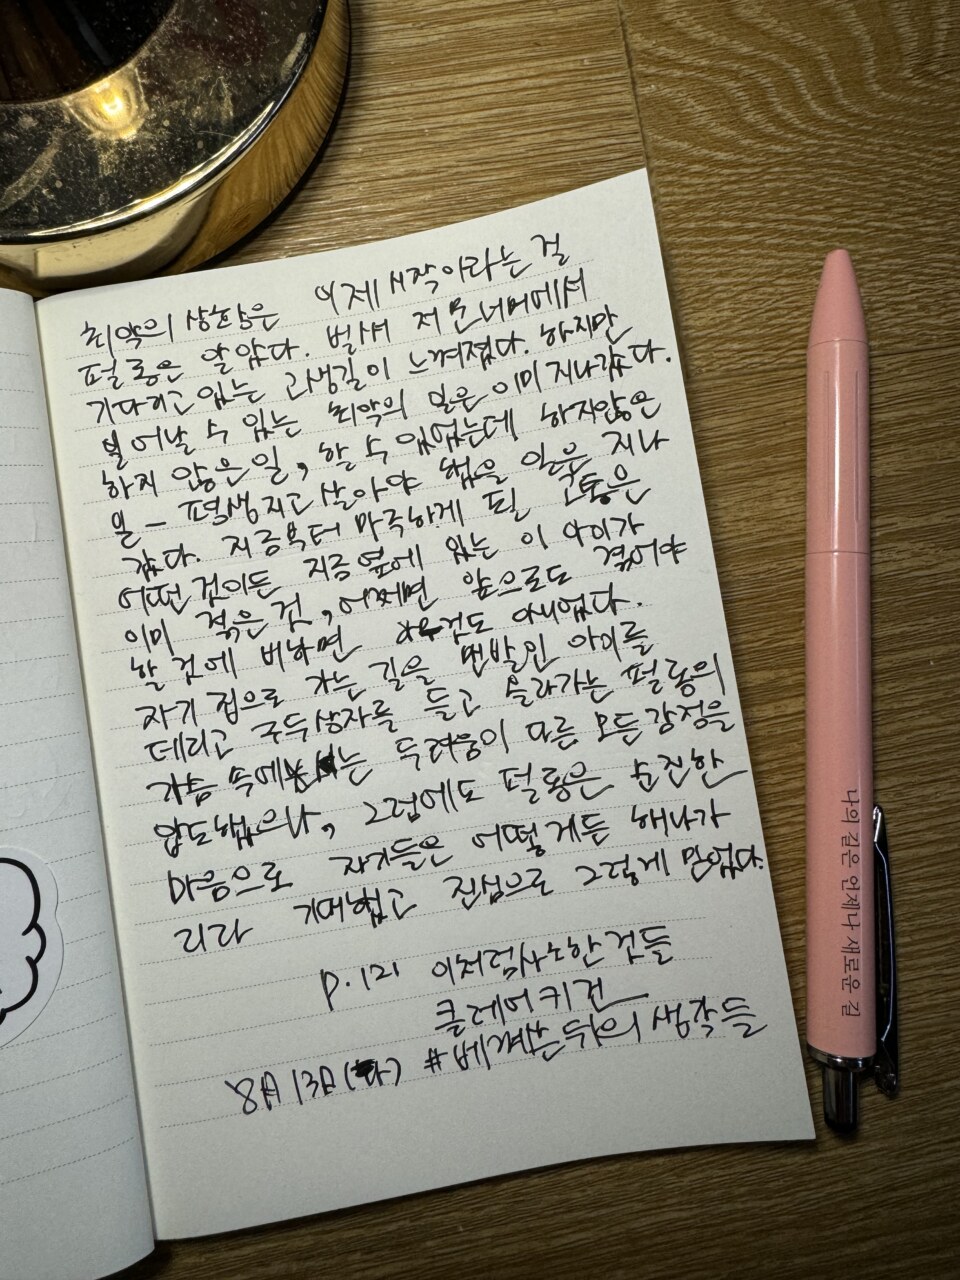 최악의 상황은 이제 시작이라는 걸
펄롱은 알았다. 벌써 저 문너머에서
기다리고 있는 고생길이 느껴졌다. 하지만
일어날 수 있는 최악의 일은 이미 지나갔다.
하지 않은 일, 할 수 있었는데 하지않은
일 - 평생 지고 살아야 했을 일은 지나
갔다. 지금부터 마주하게 될 고통은
어떤 것이든 지금 옆에 있는 이 아이가
이미 겪은 것, 어쩌면 앞으로도 겪어야
할 것에 비하면 아무것도 아니었다.
자기 집으로 가는 길을 맨발인 아이를
데리고 구두상자를 들고 올라가는 펄롱의
가슴 속에서는 두려움이 다른 모든감정을
압도했으나, 그럼에도 펄롱은 순진한
마음으로 자기들은 어떻게든 해나가
리라 기대했고 진심으로 그렇게 믿었다.
p.121 이처럼사소한 것들
클레어키건
8月 13日 (화) #베껴쓴뒤의 생각들
나의 길은 언제나 새로운 길